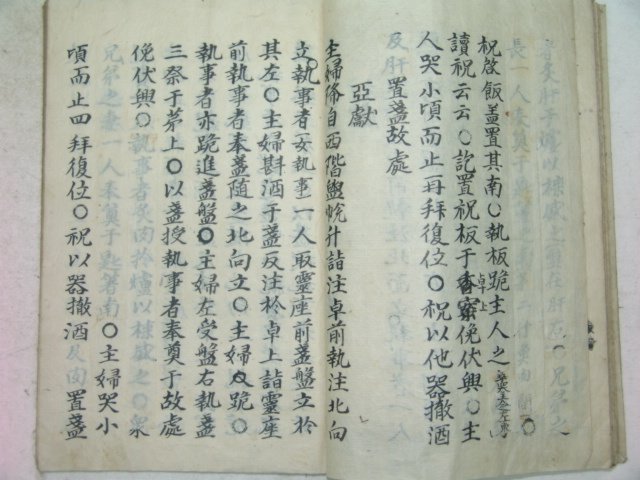 祝啓飯盖置其南○執板跪主人之
讀祝云云○訖置祝板于香案卓上俛伏興○主
人哭小頃而止再拜復位○祝以他器撤酒
及肝置盞故處
亞獻
主婦俗自西階盥帨升詣注卓前執注北向
立執事者女執事一人取靈座前盞盤立於
其左○主婦斟酒于盞反注於卓上詣靈座
前執事者奉盞隨之北向立○主婦跪○
執事者亦跪進盞盤○主婦左受盤右執盞
三祭于茅上○以盞授執事者奉奠于故處
俛伏興○
○主婦哭小
頃而止四拜復位○祝以器撤酒及肉置盞